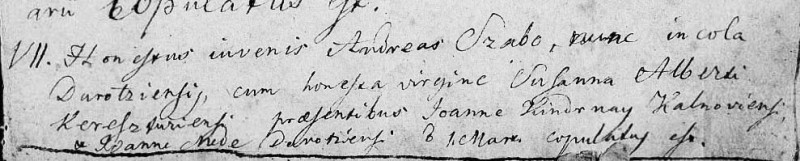 arii copulatus est.
VII. Honestus iuvenis Andreas Szabo, nunc incola
Darotziensis, cum honesta virgine Susanna Alberti
Kereszturiensi praesentibus Joanne Kindrnay Kalnoviensi,
& Joanne Mede Darotziensi d 1. Mart. copulatus est.